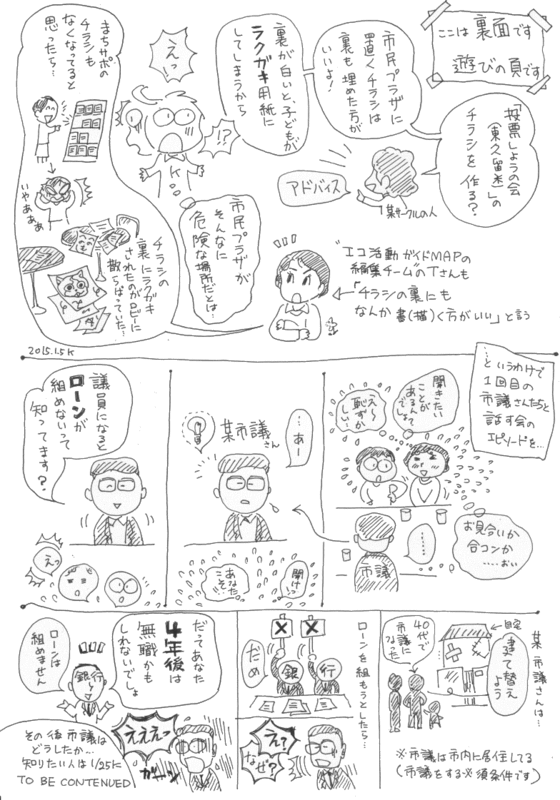 ここは裏面です
遊びの頁です
「投票しようの会
(東久留米)」の
チラシを作る?
某サークルの人
アドバイス
市民プラザに
置くチラシは
裏も埋めた方が
いいよ!
裏が白いと、子どもが
ラクガキ用紙に
してしまうから
えっ
!?
K
市民プラザが
そんなに
危険な場所だとは…
まちサポの
チラシも
なくなってると
思ったら…
いやあああ
チラシの
裏にラクガキ
されたのがロビーに
散らばっていた…
エコ活動ガイドMAPの
編集チームのTさんも
「チラシの裏にも
なんか書(描)く方がいい」と言う
2015.1.5K
…というわけで
1回目の
市議さんたちと
話す会の
エピソードを…
聞きたい
ことが
あるんでしょ
え〜
恥ずか
しい…
お見合いか
合コンか
……おい
………
市議
…あー
某市議さん
聞けっ
あなた
こそ
議員になると
ローンが
組めないって
知ってます?
えっ
某市議さんは…
自宅
建て替え
よう
40代で
市議に
なった
※市議は市内に居住してる
(市議をする必須条件です)
ローンを組もうとしたら…
×
×
銀
行
だめ
え?
なぜ?
だってあなた
4年後は
無職かも
しれないでしょ
銀行
ローンは
組めません
えええっ
ガーン
その後市議は
どうしたか…
知りたい人は1/25に
TO BE CONTENUED